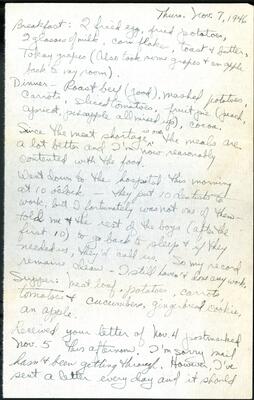 Thurs. Nov. 7, 1946
Breakfast: 2 fried eggs, fried potatoes,
2 glasses of milk, corn flakes, toast & butter,
Tokay grapes (Also took some grapes & an apple
back to my room).
Dinner - Roast beef (good), mashed potatoes,
carrots, sliced tomatoes, fruit pie (peach,
apricot, pineapple all mixed up), cocoa.
Since the meat shortage is over the meals are
a lot better and I'm now reasonably
contented with the food.
Went down to the hospital this morning
at 10 o'clock - they put 10 dentists to
work, but I fortunately was not one of them -
told me & the rest of the boys (after the
first 10) to go back to sleep & if they
needed us, they'd call us. So my record
remains clean - I still haven't done any work.
Supper: meat loaf, potatoes, carrots
tomatoes & cucumbers, gingerbread cookie,
an apple.
Received your letter of Nov. 4 postmarked
Nov. 5 this afternoon. I'm sorry mail
hasn't been getting through. However, I've
sent a letter every day and it should